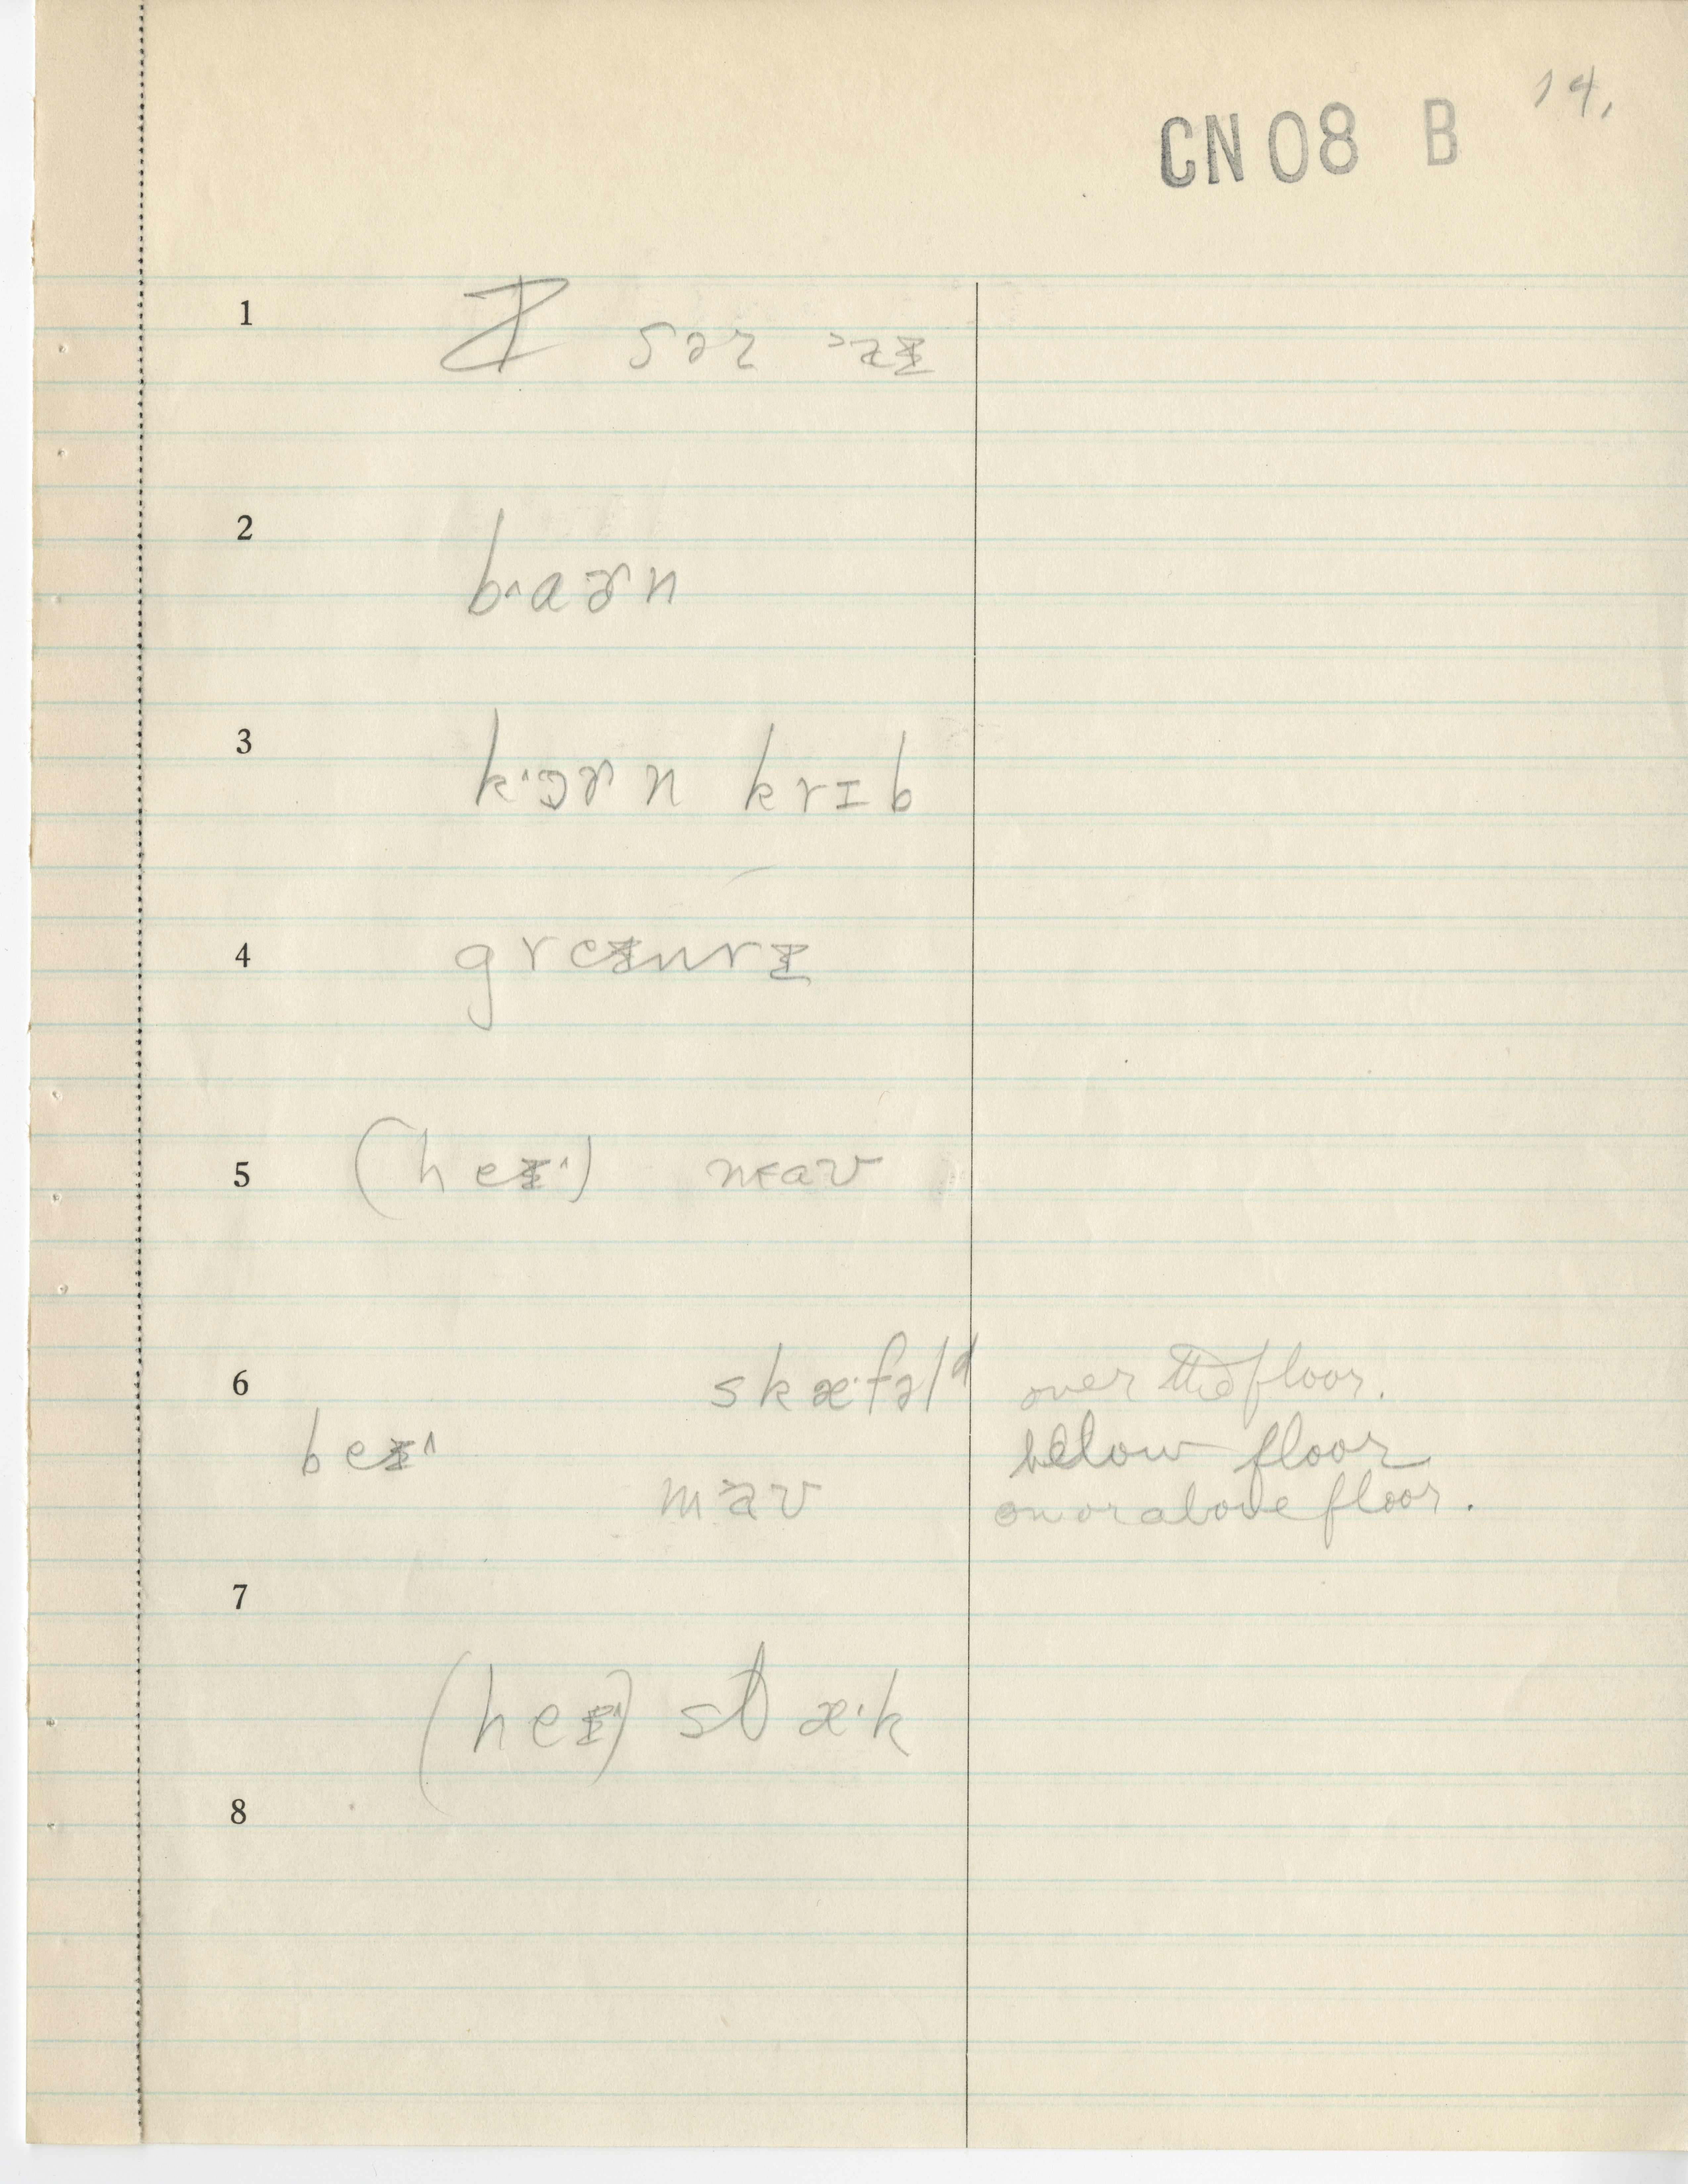 14.
CN 08 B
1
2
bˑ^aɚn
3
kˑ^ɔɚn krɪb
4
greɪnrɪ
5
(heɪ^) mav
6 skæˑfəld over the floor.
beɪ^ below floor
mav on or above floor.
7
(heɪ^) stæˑk
8